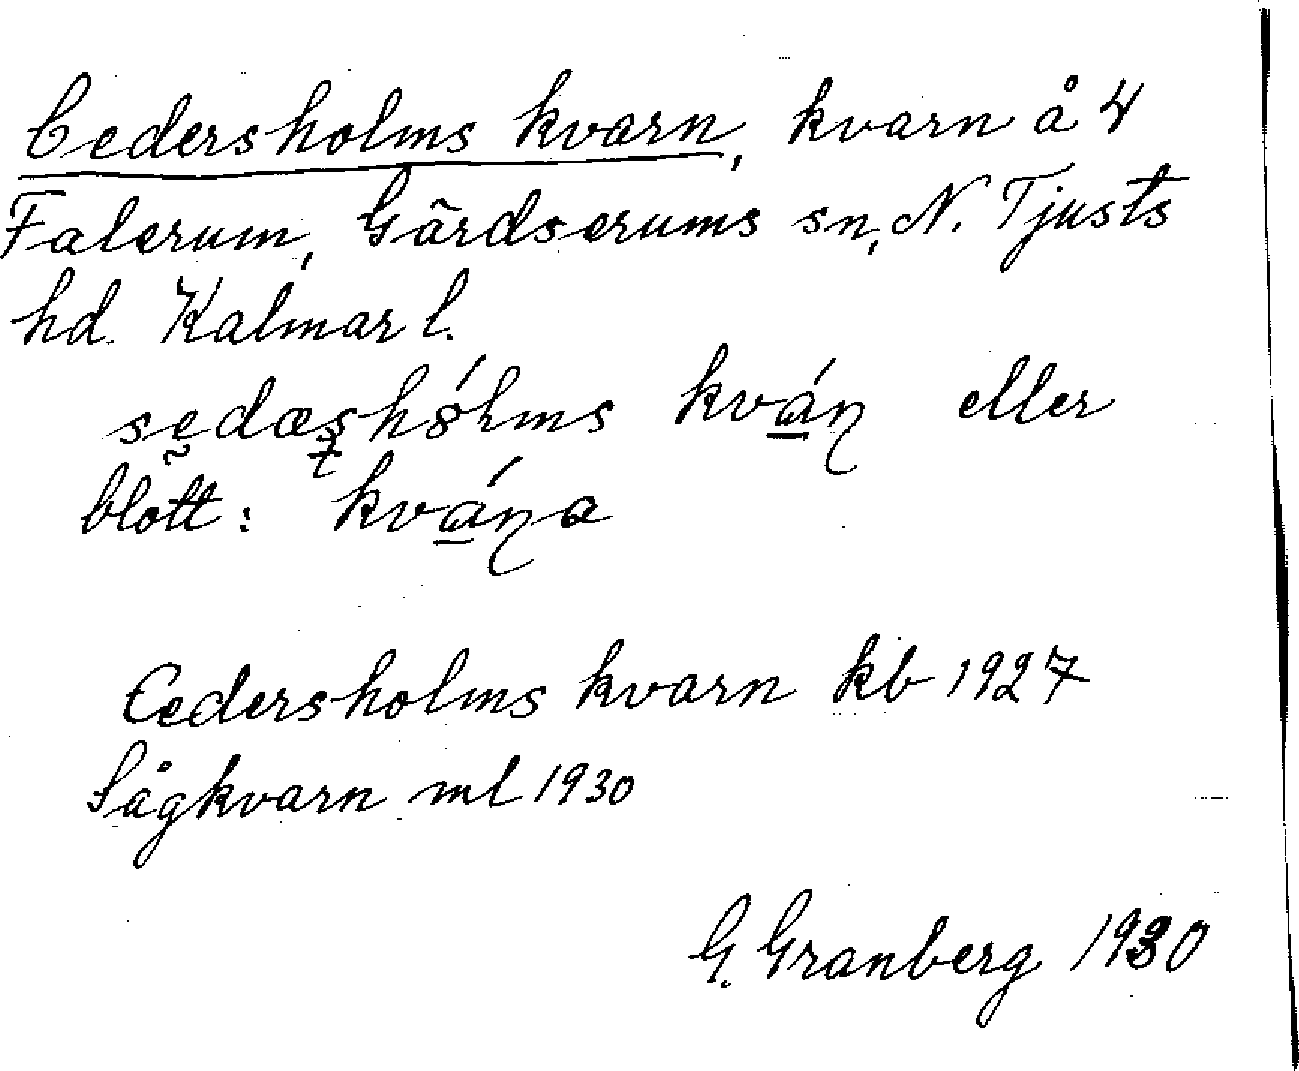 Cedersholms kvarn, kvarn å 4
Falerum, Gärdserums sn, N. Tjusts
hd. Kalmar l.
kván eller
blott: kvána
Cedersholms kvarn kb 1927
Sågkvarn ml 1930
G. Granberg 1930